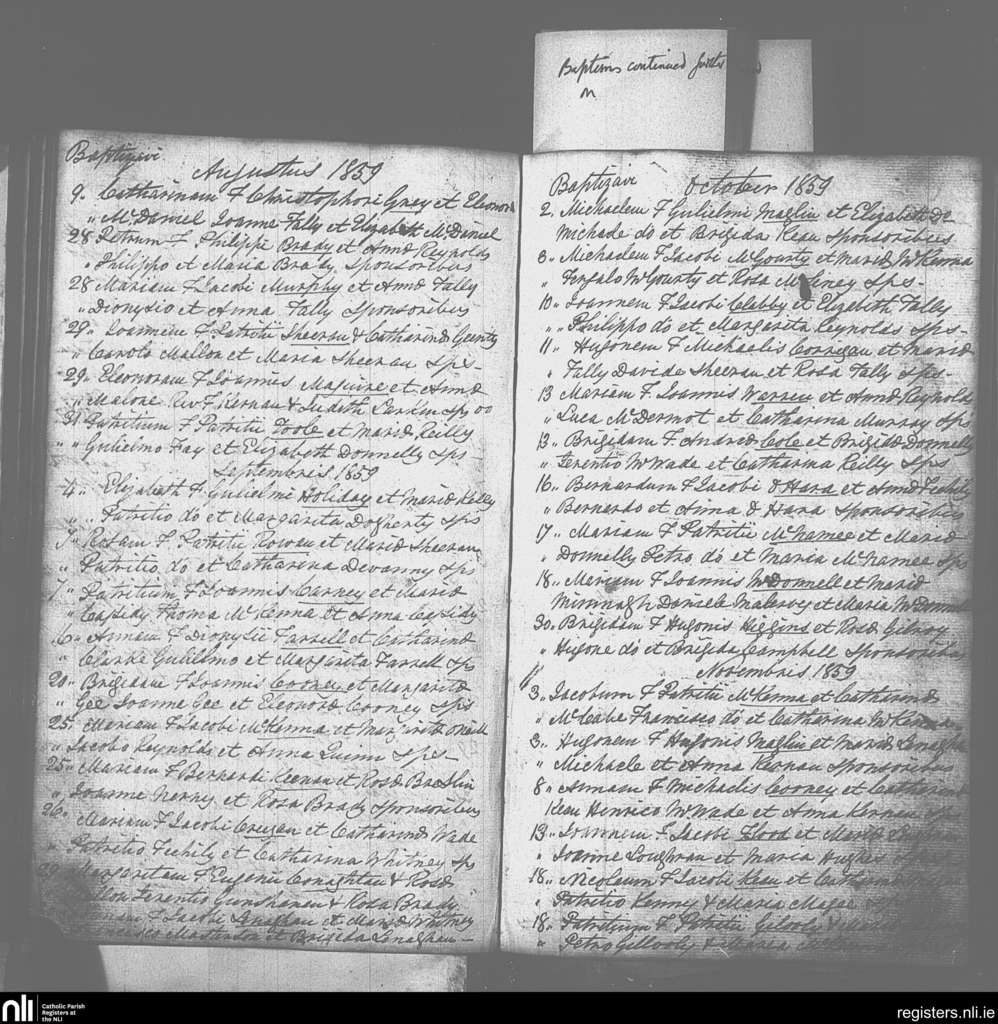 Baptisms continued further
on
Baptizavi
Augustus 1859
9. Catharinam F Christophori Gray et Eleonora
" McDaniel Joanne Tally et Elizabeth McDaniel
28 Petrum F. Philippi Brady et Anna Reynolds
" Philippo et Maria Brady Sponsoribus
28 Mariam F Jacobi Murphy et Anna Tally
" Dionysio et Anna Tally Sponsoribus
29. Joannem F Patritii Sheeran & Catharina
" Carolo Mallon et Maria Sheeran Sps-
29. Eleonoram F Joannis Maguire et Anna
" Malone Rev F Kernan & Judith Larkin Sps
31 Patritium F Patritii Toole et Maria Reilly
" " Gulielmo Fay et Elizabeth Donnelly Sps
Septembris 1859
4. " Elizabeth F. Gulielmi Holiday et Maria Kelly
" " Patritio do et Margarita Dogherty Sps
7. " Rosam F. Patritii Rowan et Maria Sheeran
" Patritio do et Catharina Devanny Sps
7. " Patritium F Joannis Carney et Maria
" Cassidy Thoma McKenna et Anna Cassidy
" Annam F Dionysii Farrell et Catharina
" Clarke Gulielmo et Margarita Farrell Sps
20. " Brigidam F Joannis Cooney et Margarita
" Gee Joanne Gee et Eleonora Cooney Sps
25. Mariam F Jacobi McKenna et Margarita ONeill
" Jacobo Reynolds et Anna Quinn Sps-
25 " Mariam F Bernardi Keenan et Rosa
" Joanne Nerny et Rosa Brady Sponsoribus
26. " Mariam F Jacobi Cregan et Catharina Wade
" Patritio Feehily et Catharina Whitney Sps
Margaritam F Eugenii Conaghtan & Rosa
Terentio Gunshanan & Rosa Brady
F Jacobi Lenaghan et Maria Whitney
Masterson et Brigida Lenaghan -
Baptizavi
October 1859
2. Michaelem F Gulielmi Maglin et Elizabeth
Michaele do et Brigida Kean Sponsoribus
8. " Michaelem F Jacobi McGourty et Maria McKenna
" McGourty et Rosa Sps-
10. " Joannem F Jacobi Clabby et Elizabeth Tally
" " Philippo do et Margarita Reynolds Sps-
11. " Hugonem F Michaelis Corrigan et Maria
" Tally Davide Sheeran et Rosa Tally Sps-
13 Mariam F. Joannis Warren et Anna Reynolds
" Luca McDermot et Catharina Murray Sps
13. " Brigidam F Andrea Cole et Brigida Donnelly
" Terentio McWade et Catharina Reilly Sps
16. " Bernardum F Jacobi O Hara et Anna Feehily
" Bernardo et Anna O Hara Sponsoribus
17. " Mariam F Patritii McNamee et Maria
" Donnelly Petro do et Maria McNamee Sps
18. " Mariam F Joannis McDonnell et Maria
Mimnagh Daniele et Maria McDonnell
30. Brigidam F Hugonis Higgins et Rosa Gilroy
" Hugone do et Brigida Campbell Sponsoribus
Novembris 1859
3. Jacobum F Patritii McKenna et Catharina
" McCabe Francisco do et Catharina McKenna
3. " Hugonem F Hugonis Maglin et Maria
" Michaele et Anna Kernan Sponsoribus
8 " Annam F Michaelis Cooney et Catharina
Kean Henrico McWade et Anna Kernan
13. " Joannem F Jacobi Flood et Maria
" Joanne Loughran et Maria Hughes
18. " Nicolaum F Jacobi Kean et
" Patritio Kenney & Maria Magee
18. " Patritium F Patritii Gilooly &
" Petro Gillooly & Maria
nli
Catholic Parish
Registers at
the NLI
registers.nli.ie